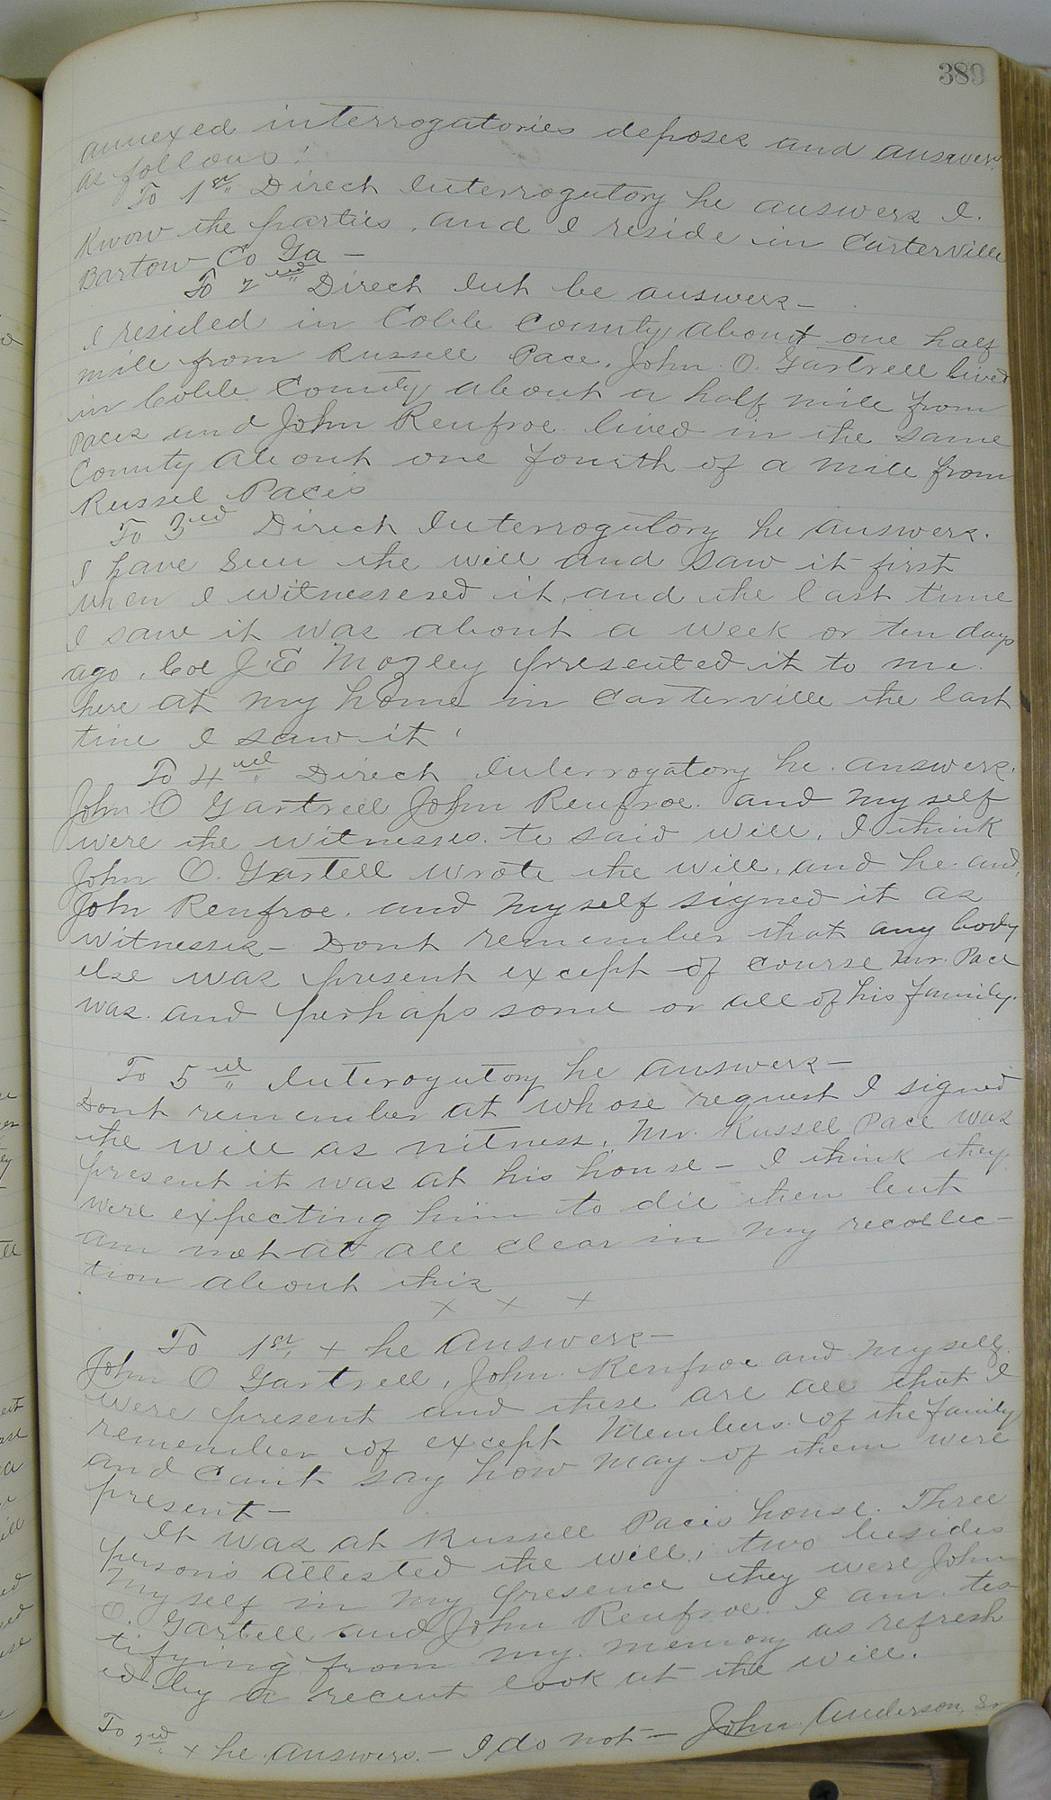 389
annexed interrogatories deposes and answers
as follows:
To 1st Direct Interrogutory he answers I.
Know the parties, and I reside in Carterville
Bartow Co Ga —
To 2nd Direct Int he answers —
I resided in Cobb County about one half
mile from Russell Pace. John O. Gartrell lived
in Cobb County about a half mile from
Paces and John Renfroe lived in the same
County about one fourth of a mile from
Russel Paces
To 3rd Direct Interrogutory he answers.
I have seen the will and saw it first
when I witnessesed it, and the last time
I saw it was about a week or ten days
ago, Col J. E Mozley presented it to me
here at my home in Carterville the last
time I saw it.
To 4th Direct Interrogatory he answers.
John O Gartrell John Renfroe and myself
were the witnesses to said will. I think
John O. Gartell wrote the will, and he and
John Renfroe, and myself signed it as
witnesses — Dont remember that any body
else was present except of course Mr. Pace
was and perhaps some or all of his family.
To 5th Interogutory he answers —
Dont remember at whose request I signed
the will as witness, Mr. Russel Pace was
present it was at his house — I think they
were expecting him to die then but
am not at all clear in my recollec-
tion about this
x x x
To 1st x he answers —
John O Gartrell, John Renfroe and myself
were present and these are all that I
remember of except Members of the family
and cant say how may of them were
present —
It was at Russell Paces house. Three
persons attested the will, two besides
myself in my presence they were John
O. Gartell and John Renfroe. I am tes-
tifying from my memory as refresh
ed by a recent look at the will.
To 2nd x he answers. — I do not — John Anderson, Sr